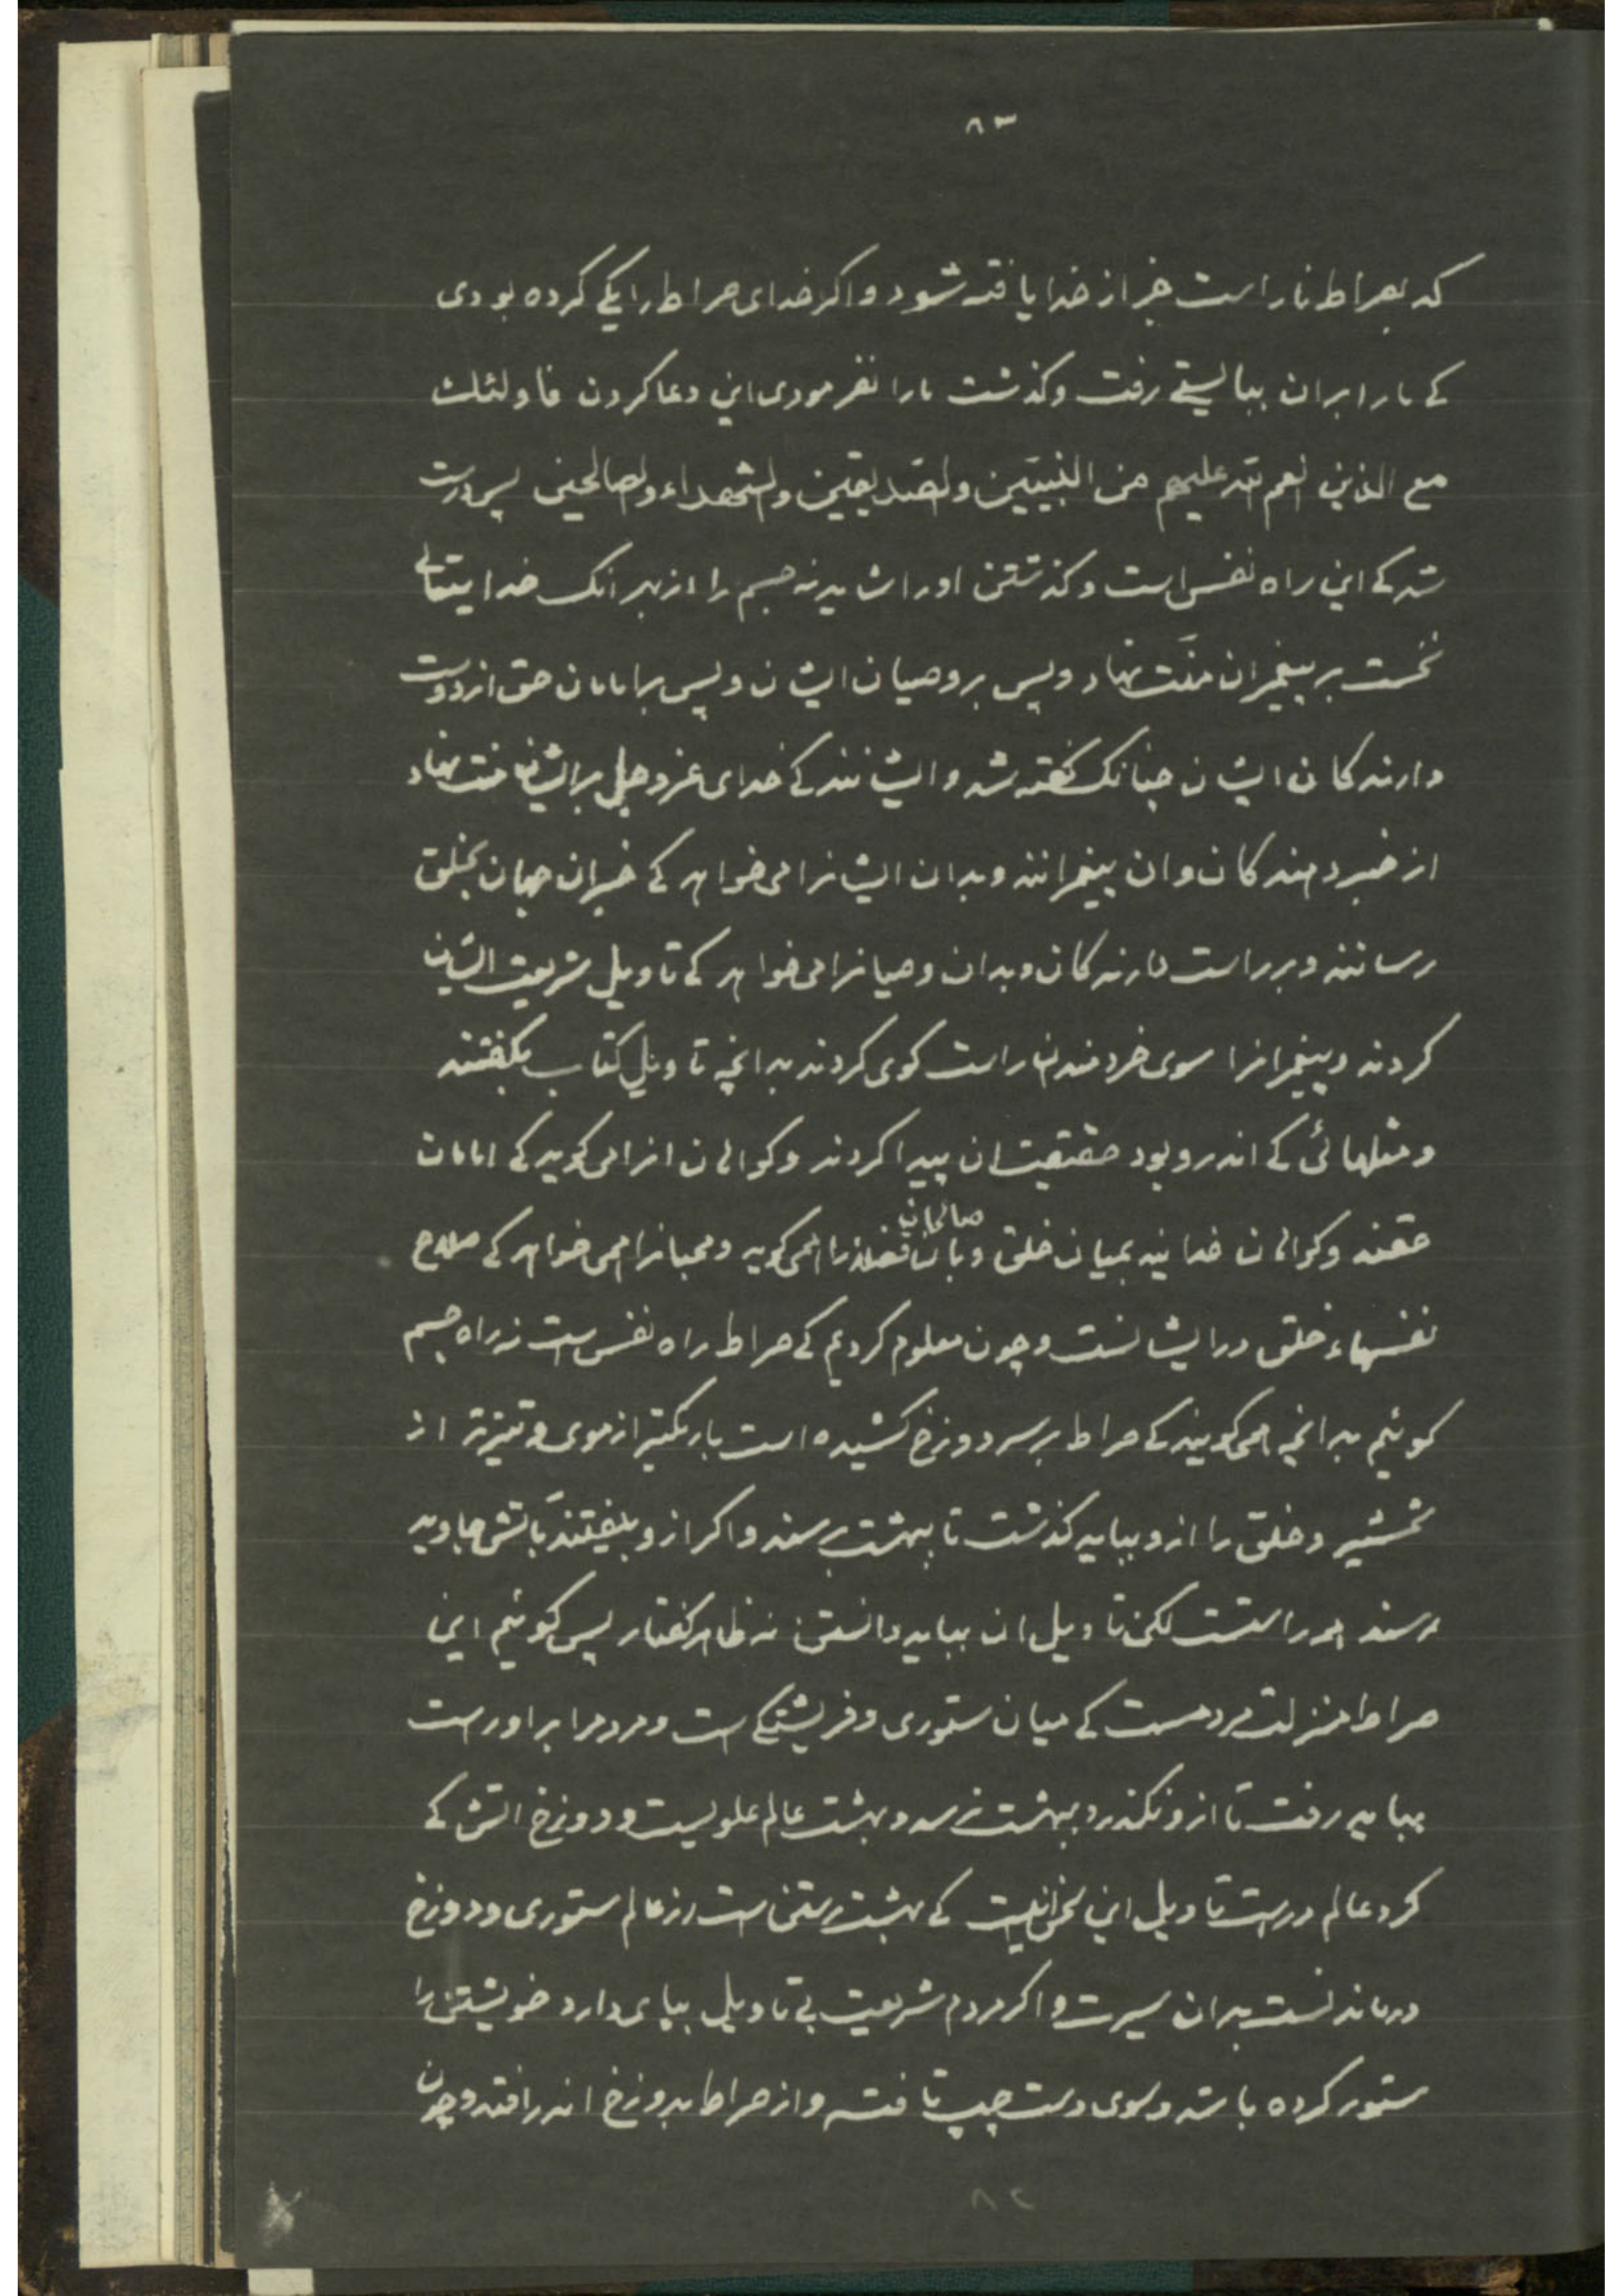 ۸۳
که بصراط ناراست جز از خدا یافته شود واکر خدای صراط را یکی کرده بودی
کے مارا بران ببایستے رفت وکذشت مارا نفرمودی این دعا کردن فاولئلث
مع الذین انعم الله علیهم من النبیین والصدیقین والشهداء والصالحین پس درست
شد کے این راه نفس است وکذشتن اورا شاید نه جسم را از بهر انک خدایتعالے
نخست بر پیغمبران منّت نهاد وپس بر وصیان ایشان وپس بر امامان حق از دوست
دارندکان ایشان چنانک کفته شد وایشانند کے خدای عز وجل بر ایشان منت نهاد
از خبر دهندکان وان پیغمبرانند وبدان ایشانرا می خواهد کے خبران جهان بخلق
رسانند وبر راست دارندکان وبدان وصیانرا می خواهد کے تاویل شریعت ایشان
کردند وپیغمبرانرا سوی خردمندان راست کوی کردند بدانچه تاویل کتاب بکفتند
ومثلهائی کے اندرو بود حقیقت ان پیدا کردند وکواهان انرا می کوید کے امامان
حقند وکواهان خدایند بمیان خلق وبان صالحان را همی کوید ومحبانرا همی خواهد کے صلاح
نفسهاء خلق در ایشانست وچون معلوم کردیم کے صراط راه نفس است نه راه جسم
کوئیم بدانچه همی کویند کے صراط بر سر دوزخ کشیده است باریکتر از موی وتیزتر از
شمشیر وخلق را ازو بباید کذشت تا ببهشت برسند واکر ازو بیفتند بآتش جاوید
رسند همه راستست لکن تاویل ان بباید دانستن نه ظاهر کفتار پس کوئیم این
صراط منزلت مردمست کے میان ستوری وفریشتکے است ومردم را بر اوراست
بباید رفت تا ازو نکذرد ببهشت نرسد وبهشت عالم علویست ودوزخ اتش کے
کرد عالم درست تاویل این سخن انیست کے بهشت رستن است از عالم ستوری ودوزخ
درماندنست بدان سیرت واکر مردم شریعت بی تاویل بپای دارد خویشتن را
ستور کرده باشد وسوی دست چپ تافته واز صراط بدوزخ اندر افتد وچون